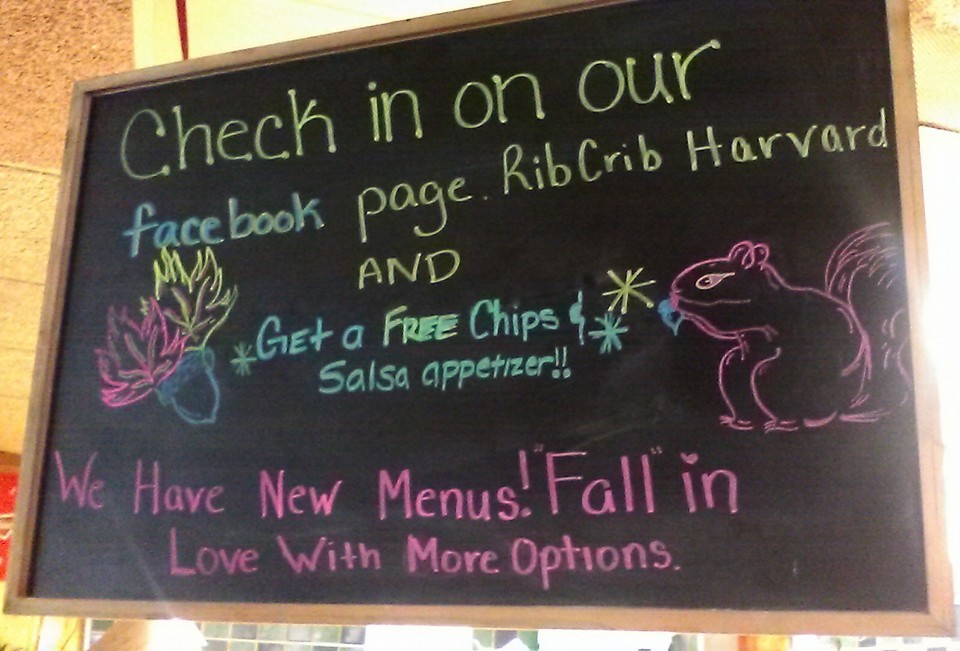 Check in on our
facebook page. RibCrib Harvard
AND
*Get a FREE Chips & *
Salsa appetizer!!
We Have New Menus! "Fall" in
Love With More Options.